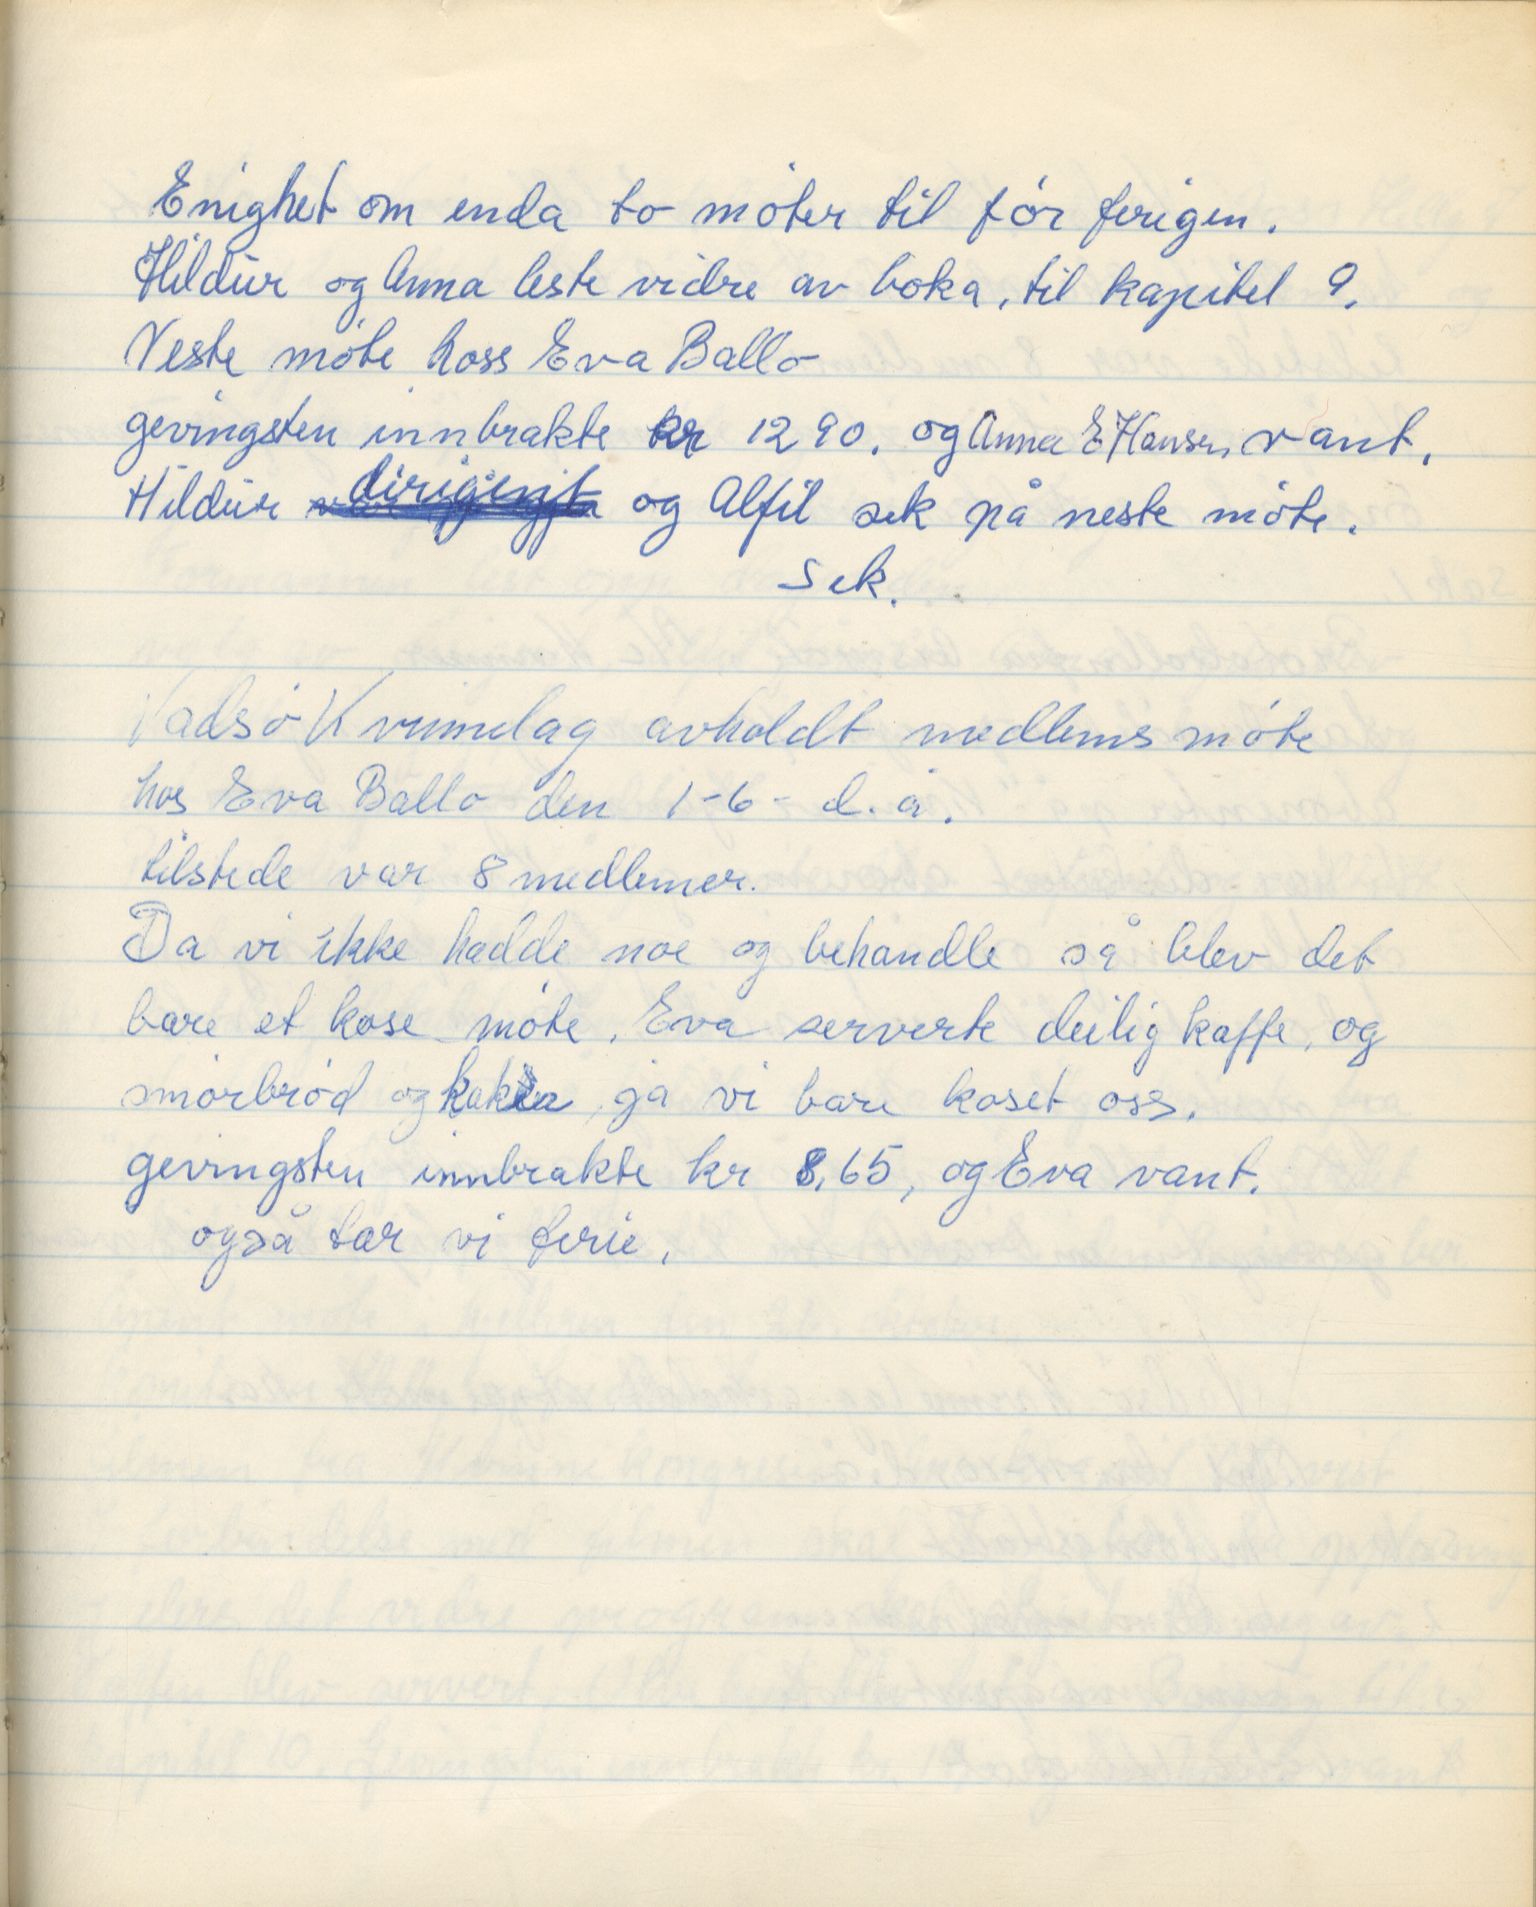 Enighet om enda to møter til før ferigen.
Hildur og Anna leste vidre av boka, til kapitel 9.
Neste møte hoss Eva Ballo
gevingsten innbrakte kr 1290. og Anna E Hansen vant.
Hildur dirigent og Alfil sek på neste møte.
Sek.
Vadsø Kvinnelag avholdt medlems møte
hos Eva Ballo den 1-6- d. å.
tilstede var 8 medlemer.
Da vi ikke hadde noe og behandle så blev det
bare et kose møte. Eva serverte deilig kaffe, og
smørbrød og kaker, ja vi bare koset oss.
gevingsten innbrakte kr 8,65, og Eva vant.
også tar vi ferie.